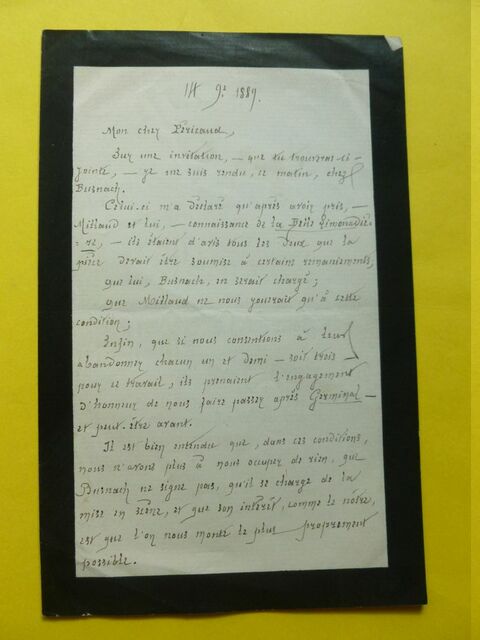 14 9e 1889.
Mon cher Péricaud,
Sur une invitation, — que tu trouveras ci-
jointe, — je me suis rendu, ce matin, chez
Busnach.
Celui-ci m'a déclaré qu'après avoir pris, —
Millaud et lui, — connaissance de la Belle Limonadiè-
re, — ils étaient d'avis tous les deux que la
pièce devait être soumise à certains remaniements;
que lui, Busnach, en serait chargé;
que Millaud ne nous jouerait qu'à cette
condition;
Enfin, que si nous consentions à leur
abandonner chacun un et demi — soit trois —
pour ce travail, ils prenaient l'engagement
d'honneur de nous faire passer après Germinal —
et peut-être avant.
Il est bien entendu que, dans ces conditions,
nous n'avons plus à nous occuper de rien, que
Busnach ne signe pas, qu'il se charge de la
mise en scène, et que son intérêt, comme le nôtre,
est que l'on nous monte le plus proprement
possible.